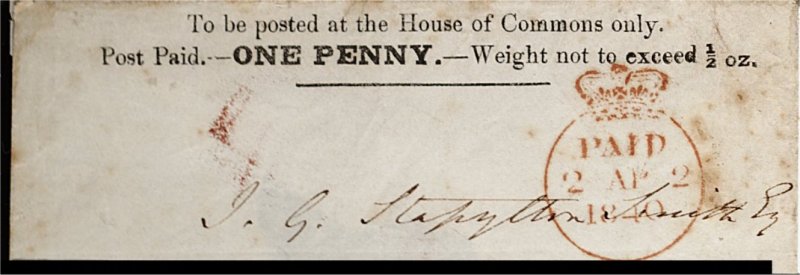 To be posted at the House of Commons only.
Post Paid.—ONE PENNY.—Weight not to exceed ½ oz.
PAID
2 AP 2
1840
J. G. Stapylton Smith Esq